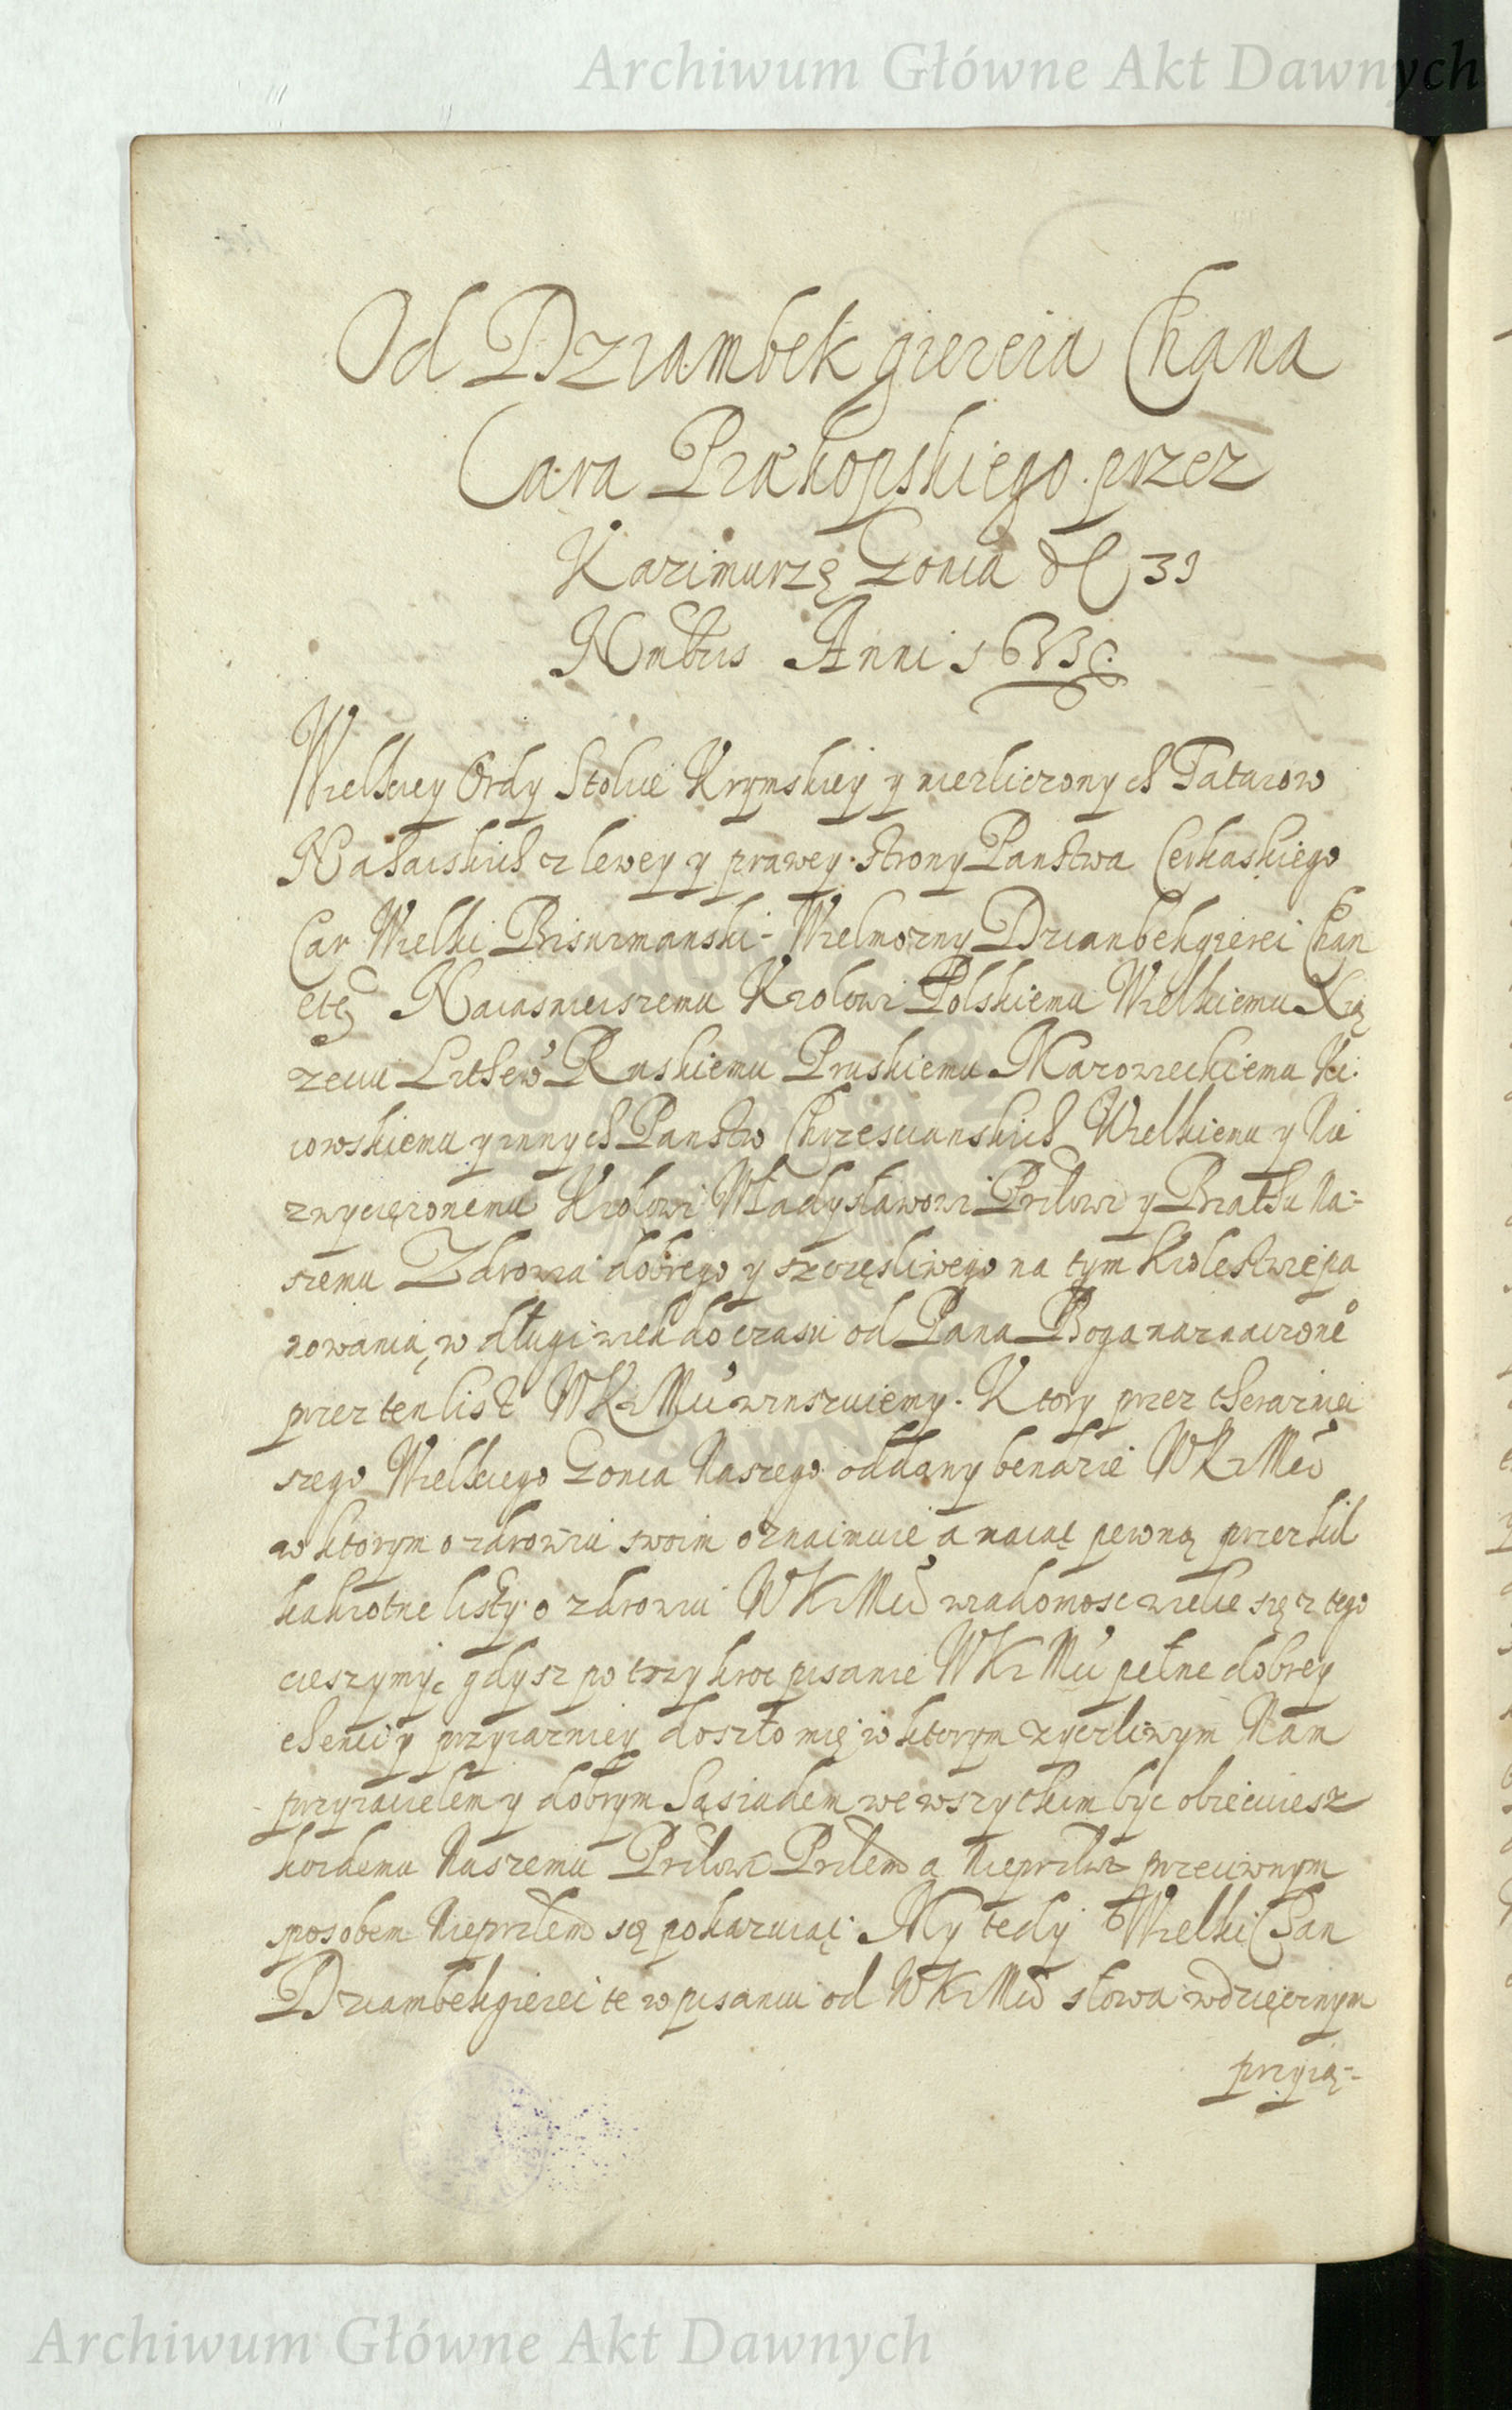 Archiwum Główne Akt Dawnych
Od Dziambek giereia Chana
Cara Przekopskiego przez
Kazimurzę Gonca
Nmbris Anni
Wielkiey Ordy Stolice Krymskiey y niezliczonych Tatarow
Nahaiskich z lewey y prawey strony Panstwa Cerkaskiego
Car Wielki Bisurmanski Wielmożny Dzianbekgierei Chan
etc Naiasnieiszemu Krolowi Polskiemu Wielkiemu Xią
zeciu Lithew Ruskiemu Pruskiemu Mazowieckiemu Ki:
iowskiemu y innych Panstw Chrzescianskich Wielkiemu y Nie
zwyciężonemu Krolowi Władysławowi Przilowi y Bratu Na-
szemu Zdrowia dobrego y szczęsliwego na tym Krolestwie pa
nowania, w długi wiek do czasu od Pana Boga naznaczone
przez ten list WKrMci winszuiemy. Ktory przez theraznie
szego Wielkiego Gonca Naszego oddany bendzie WKrMci
w ktorym o zdrowiu swoim oznaimuie a maiąc pewną przez kil
kakrotne listy o zdrowiu WKrMci wiadomosc wielie się z tego
cieszymy, gdysz po trzykroc pisanie WKrMci pełne dobrey
chenci y przyiazniey doszło mię w ktorym zyczliwym Nam
przyiacielem y dobrym Sąsiadem we wszytkim byc obiecuiesz
kozdemu Naszemu Przilowi Przilem a Nieprzilwi przeciwnym
sposobem Nieprzilem się pokazuiąc. My tedy Wielki Chan
Dziambekgierei te w pisaniu od WKrMci słowa wdzięcznym
przyią-
Archiwum Główne Akt Dawnych